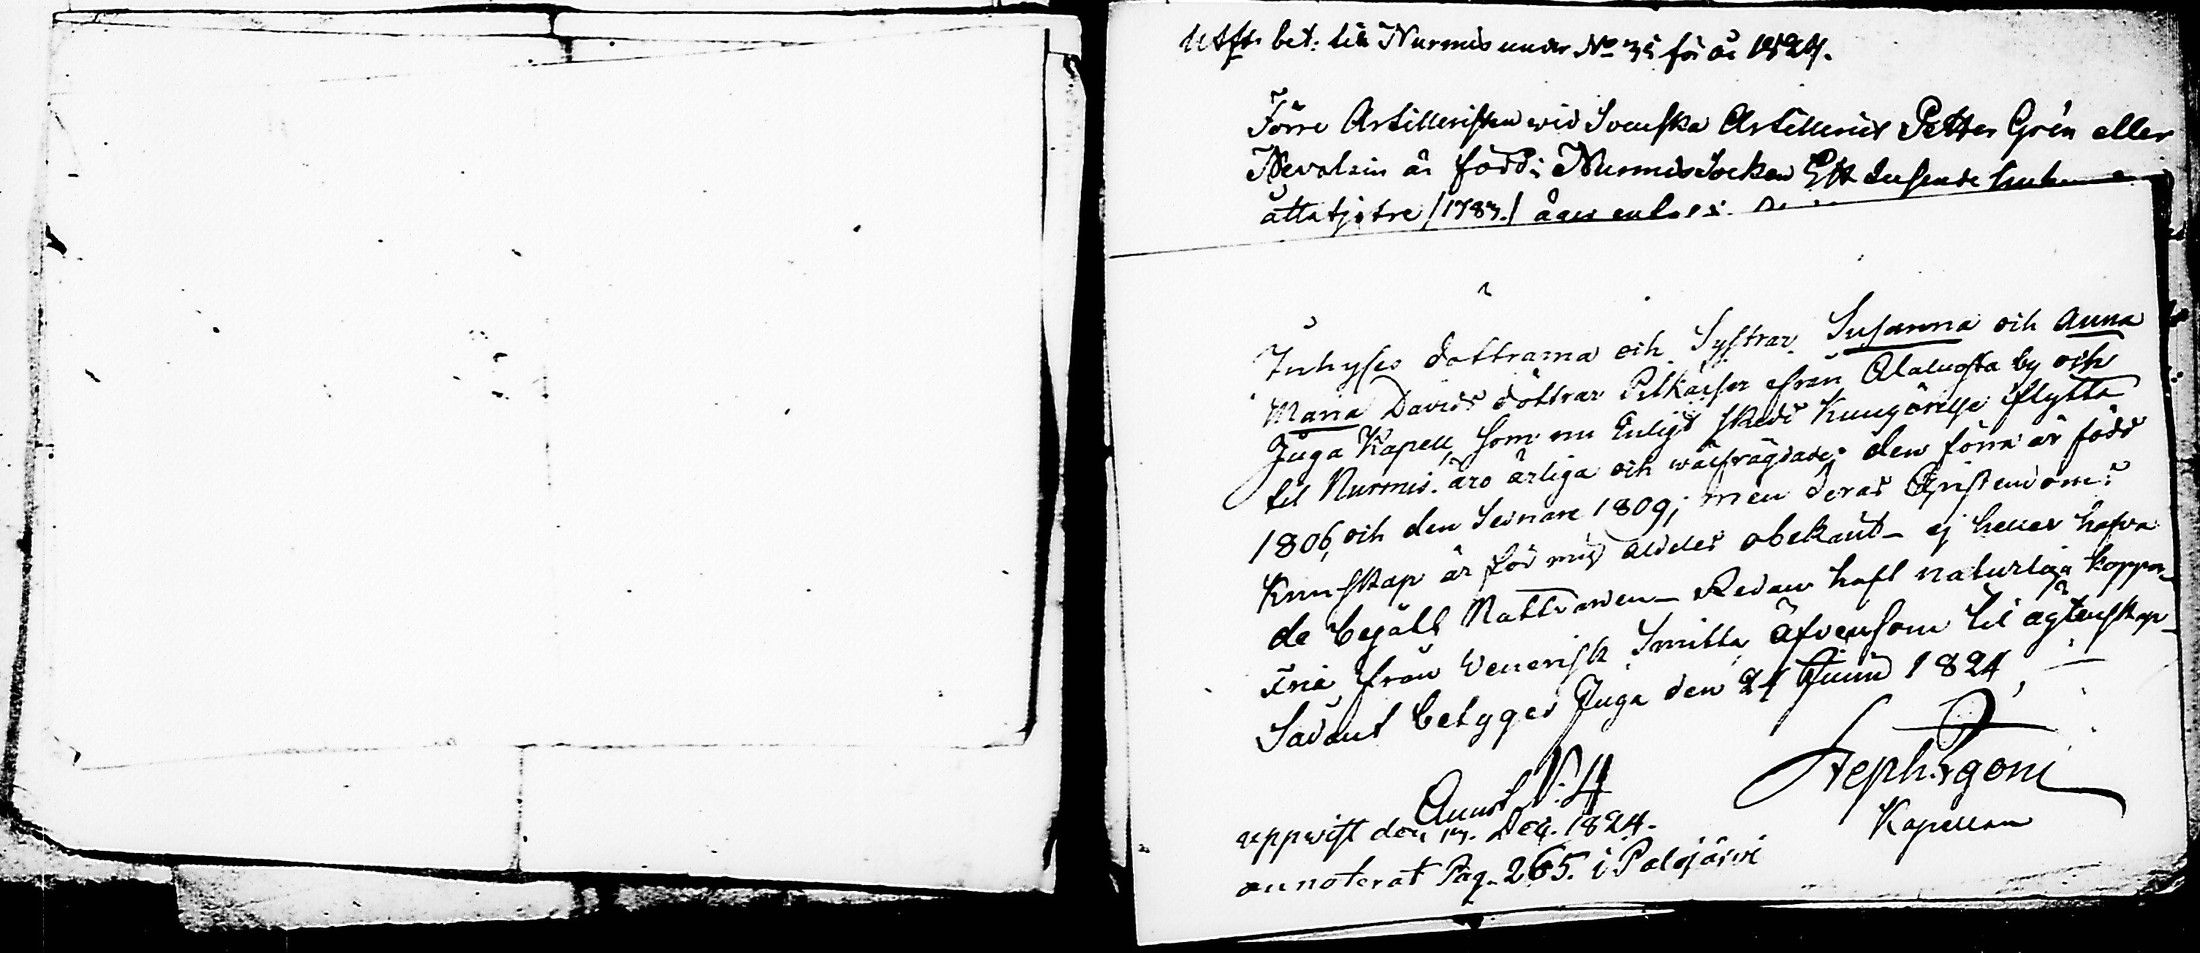 Utft bet: till Nurmis under No 35 för år 1824.
Förre Artilleristen wid Svenska Artilleriet Petter Grén eller
Nevalain är född i Nurmis Socken Ett tusende
åttatjotre /1783./ äger
Inhyses döttrarna och Systrar Susanna och Anna
Maria Davids döttrar Pitkäiser ifrån Alaluosta by och
Juga Kapell, som nu Enligt skedd Kungörelse flytta
til Nurmis. äro ärliga och wälfrägdade: den förra är född
1806, och den Sednare 1809; men deras Christendoms
Kunskap är för mig aldeles obekant – ej heller hafva
de begått Nattvarden – Redan haft naturliga koppor –
Fria från Venerisk Smitta, äfvensom til ägtenskap –
Sådant betyges Juga den 24 Junii 1824
Steph: Argoni
Kapellan
Annot N:4
uppwist den 13. Dec. 1824.
annoterat Pag. 265. i Palojärvi